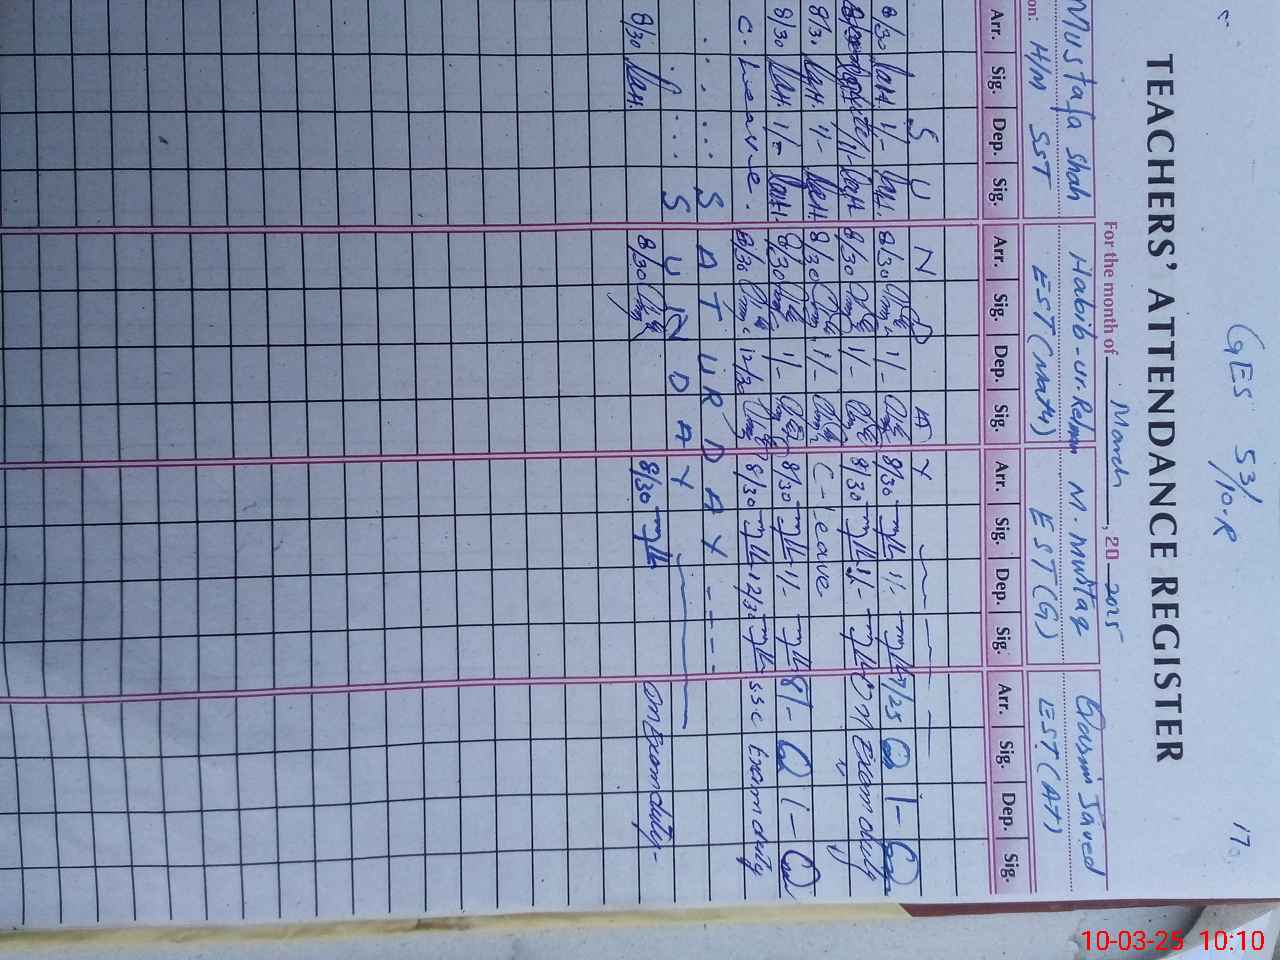 GES 53/10-R
17
TEACHERS' ATTENDANCE REGISTER
For the month of March, 20 2025
Mustafa Shah Habib-ur-Rehman M. Mushtaq Qasim Javed
on: H/M SST EST (Math) EST (G) EST (AT)
Arr. Sig. Dep. Sig. Arr. Sig. Dep. Sig. Arr. Sig. Dep. Sig. Arr. Sig. Dep. Sig.
S U N D A Y
8/30 1/- 8/30 1/- 8/30 1/- 7/25 1/-
1/- 8/30 1/- 8/30 1/- On Exam duty
8/30 1/- 8/30 1/- C-leave
8/30 1/- 8/30 1/- 8/30 1/- 8/- 1-
C. Leave. 8/30 12/30 8/30 12/30 SSC Exam duty
S A T U R D A Y - - - -
S U N D A Y
8/30 8/30 8/30 On Exam duty-
10-03-25 10:10